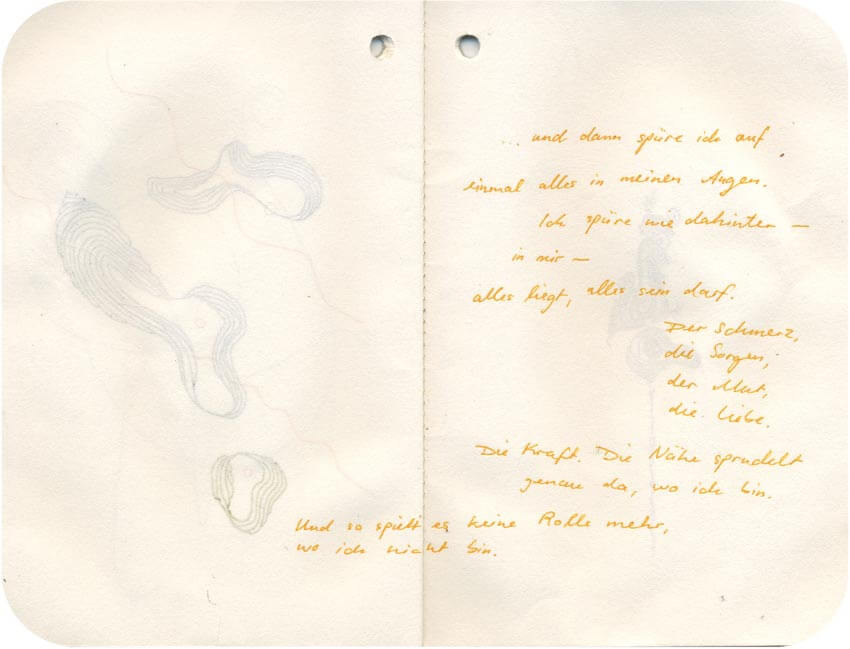 ... und dann spüre ich auf
einmal alles in meinen Augen.
Ich spüre wie dahinter –
in mir –
alles liegt, alles sein darf.
Der Schmerz,
die Sorgen,
der Mut,
die Liebe.
Die Kraft. Die Nähe sprudelt
genau da, wo ich bin.
Und so spielt es keine Rolle mehr,
wo ich nicht bin.